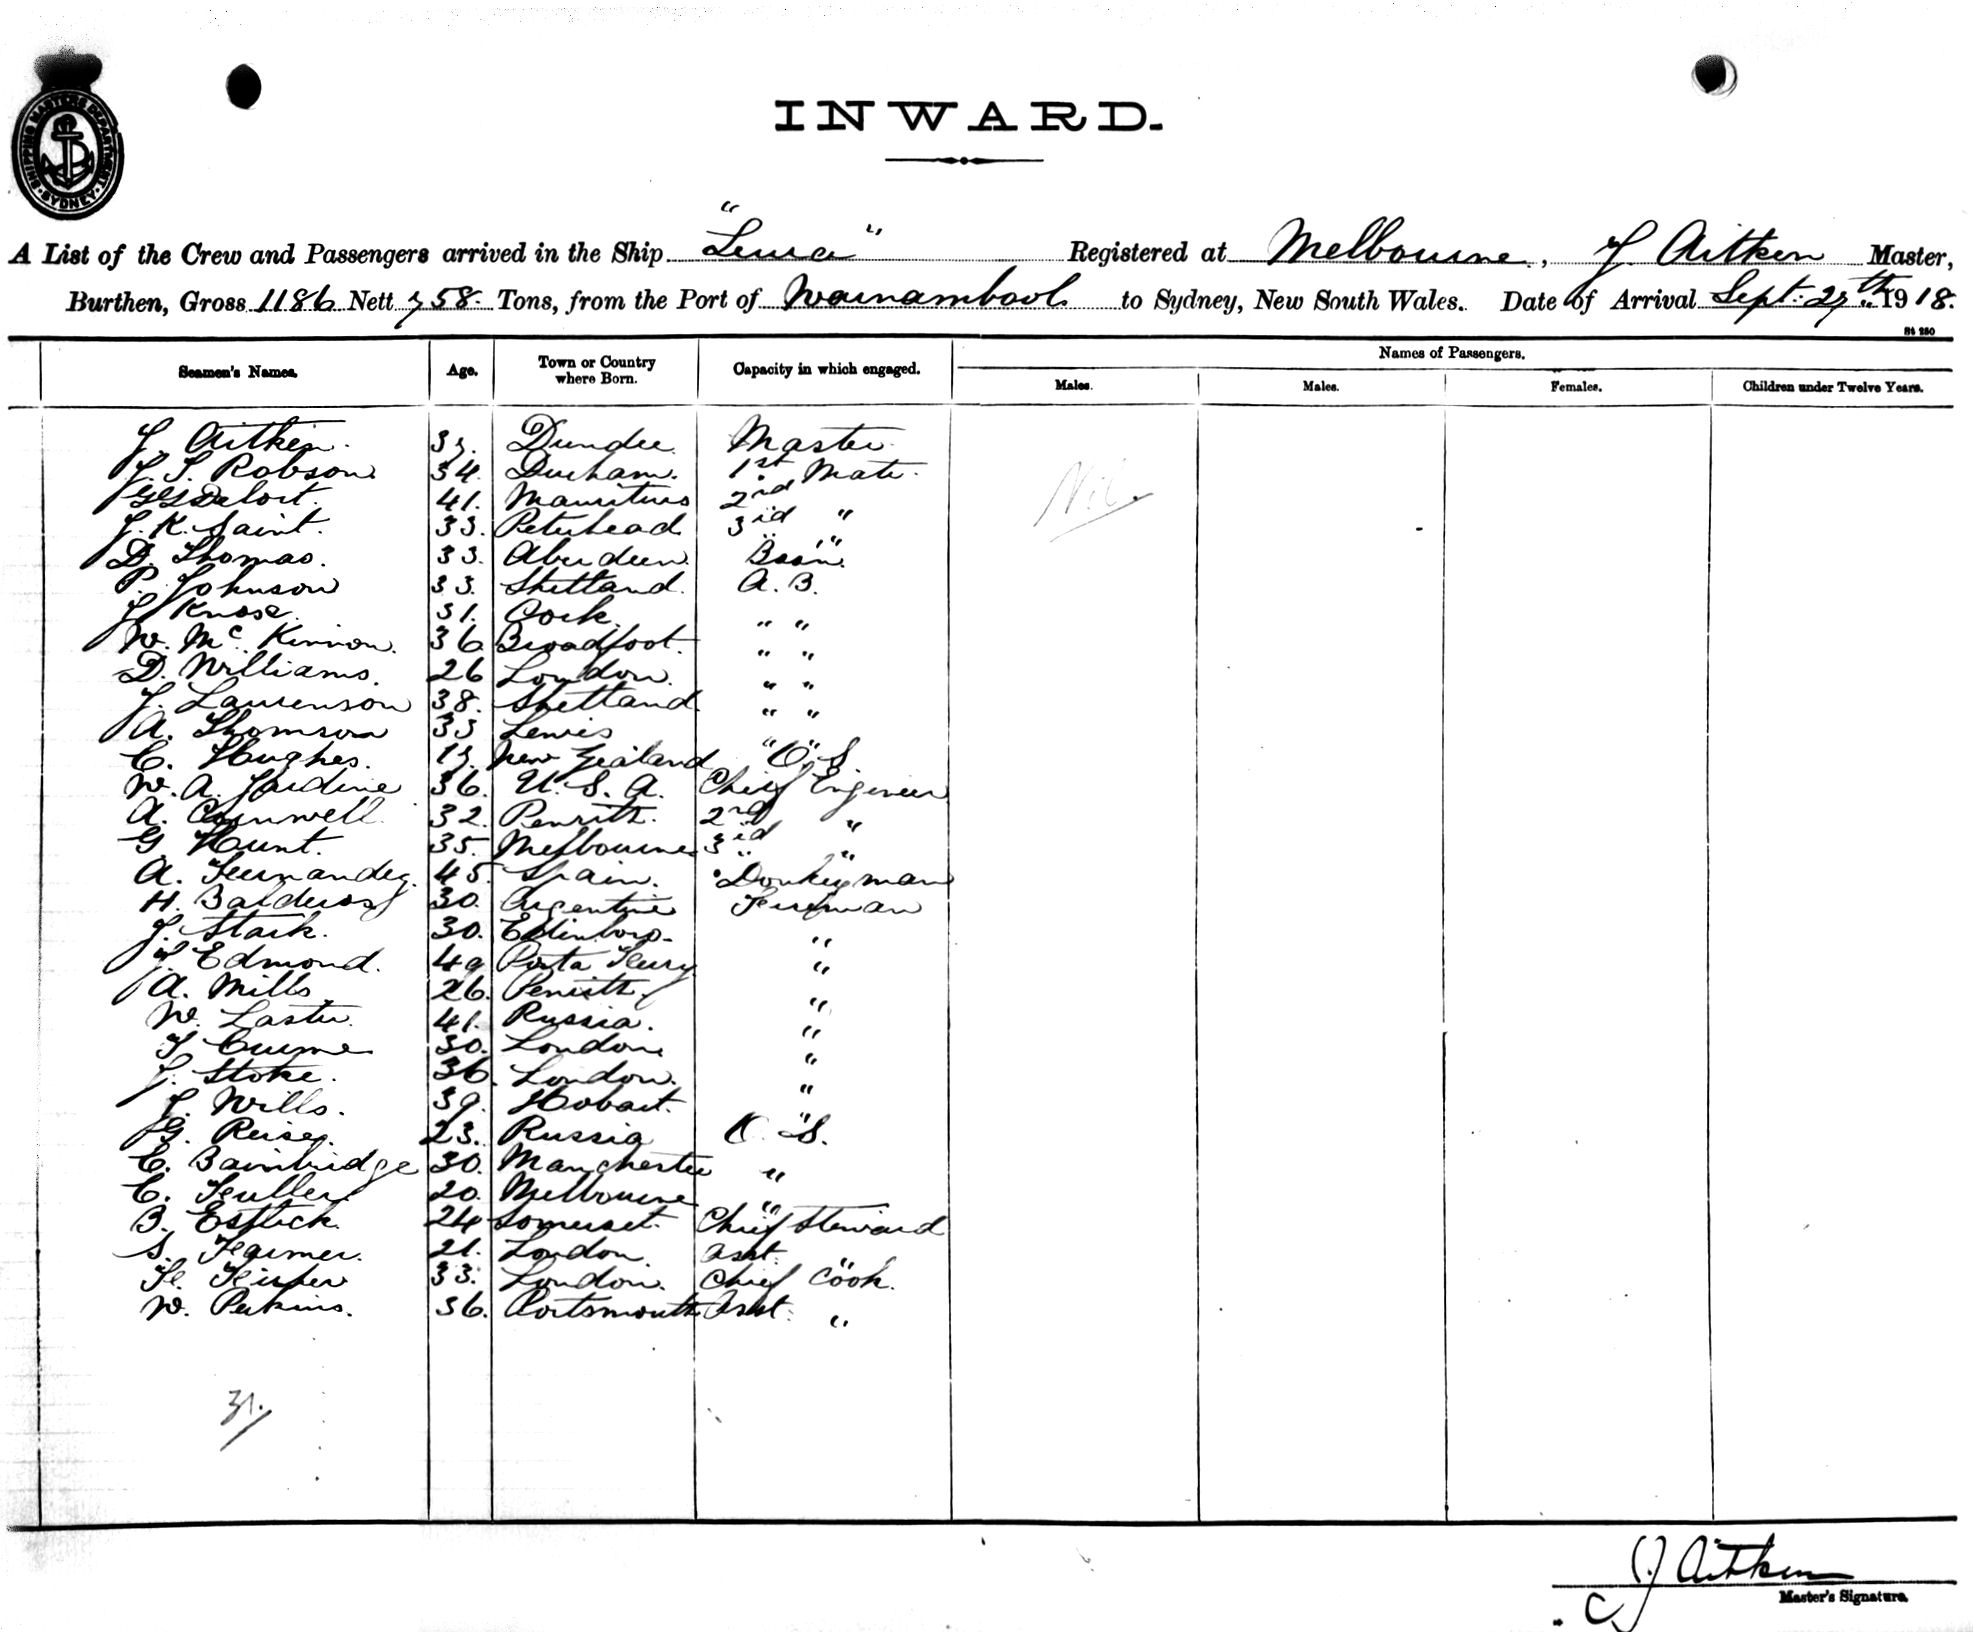 SHIPPING MASTERS DEPARTMENT · SYDNEY ·
INWARD.
A List of the Crew and Passengers arrived in the Ship "Lewa" Registered at Melbourne, J. Aitken Master,
Burthen, Gross 1186 Nett 758. Tons, from the Port of to Sydney, New South Wales. Date of Arrival Sept. 27th 1918.
St 250
Seamen's Names. Age. Town or Country where Born. Capacity in which engaged. Names of Passengers.
Males. Males. Females. Children under Twelve Years.
J. Aitken. 37. Dundee Master
J. S. Robson 34. Durham. 1st Mate.
41. Mauritius 2nd "
J. K. Saint. 33. Peterhead 3rd "
D. Thomas. 33. Aberdeen Bosn.
P. Johnson 33. Shetland. A. B.
J. Knose. 31. Cork. " "
W. McKinnon. 36 Broadfoot. " "
D. Williams. 26 London. " "
J. Laurenson 38. Shetland. " "
A. Thomson 33 Lewis " "
C. Hughes. 17. New Zealand O. S.
W. A. Jardine 36. U. S. A. Chief Engineer
A. 32. Penrith. 2nd "
G. Hunt. 35. Melbourne 3rd "
A. Fernandez. 45. Spain. Donkeyman
H. 30. Argentine Fireman
J. Stark. 30. Edinboro. "
J. Edmond. 49 "
A. Mills 26. Penrith "
W. Laster. 41. Russia. "
30. London "
J. Stoke. 36. London. "
J. Wills. 39. Hobart. "
G. 23. Russia O. S.
C. Bainbridge 30. Manchester "
C. Fuller 20. Melbourne "
B. Estlick. 24 Somerset. Chief Steward
S. Farmer. 21. London Asst. "
Fisher 33. London. Chief Cook.
W. Perkins. 36. Portsmouth Asst. "
Nil.
31.
J Aitken
Master's Signature.